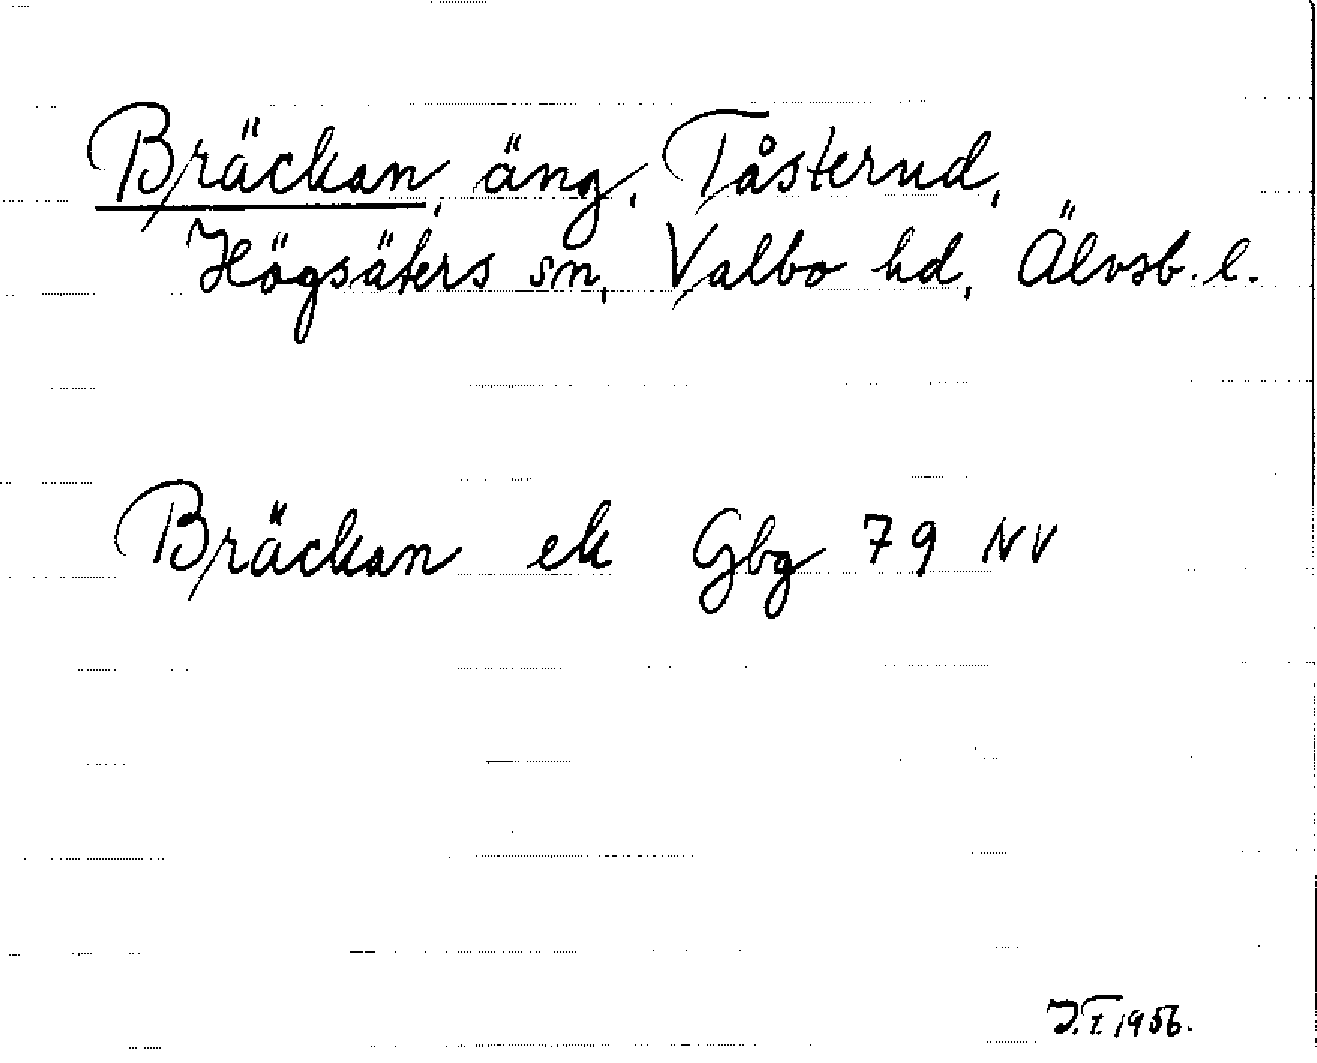 Bräckan, äng, Tåsterud,
Högsäters sn, Valbo hd, Älvsb. l.
Bräckan ek Gbg 79 NV
1956.